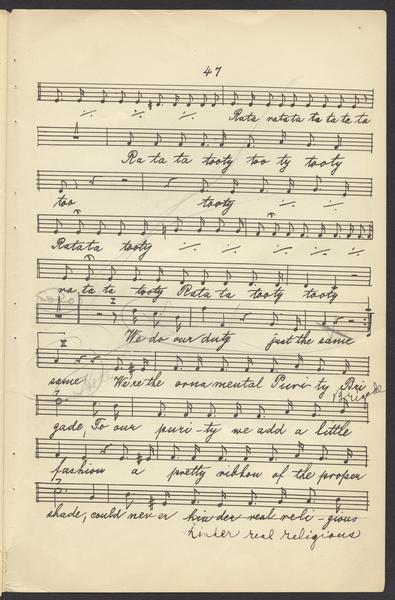 47
Rata ratata ta ta ta ta
Ra ta ta tooty too ty tooty
too tooty
Ratata tooty
ra ta ta tooty Rata ta tooty tooty
I
We do our duty just the same
II
same We're the ornamental Puri-ty Bri
Brigade
gade, To our puri-ty we add a little
fashion a pretty ribbon of the proper
shade, could never hinder real reli-gious
hinder real religious